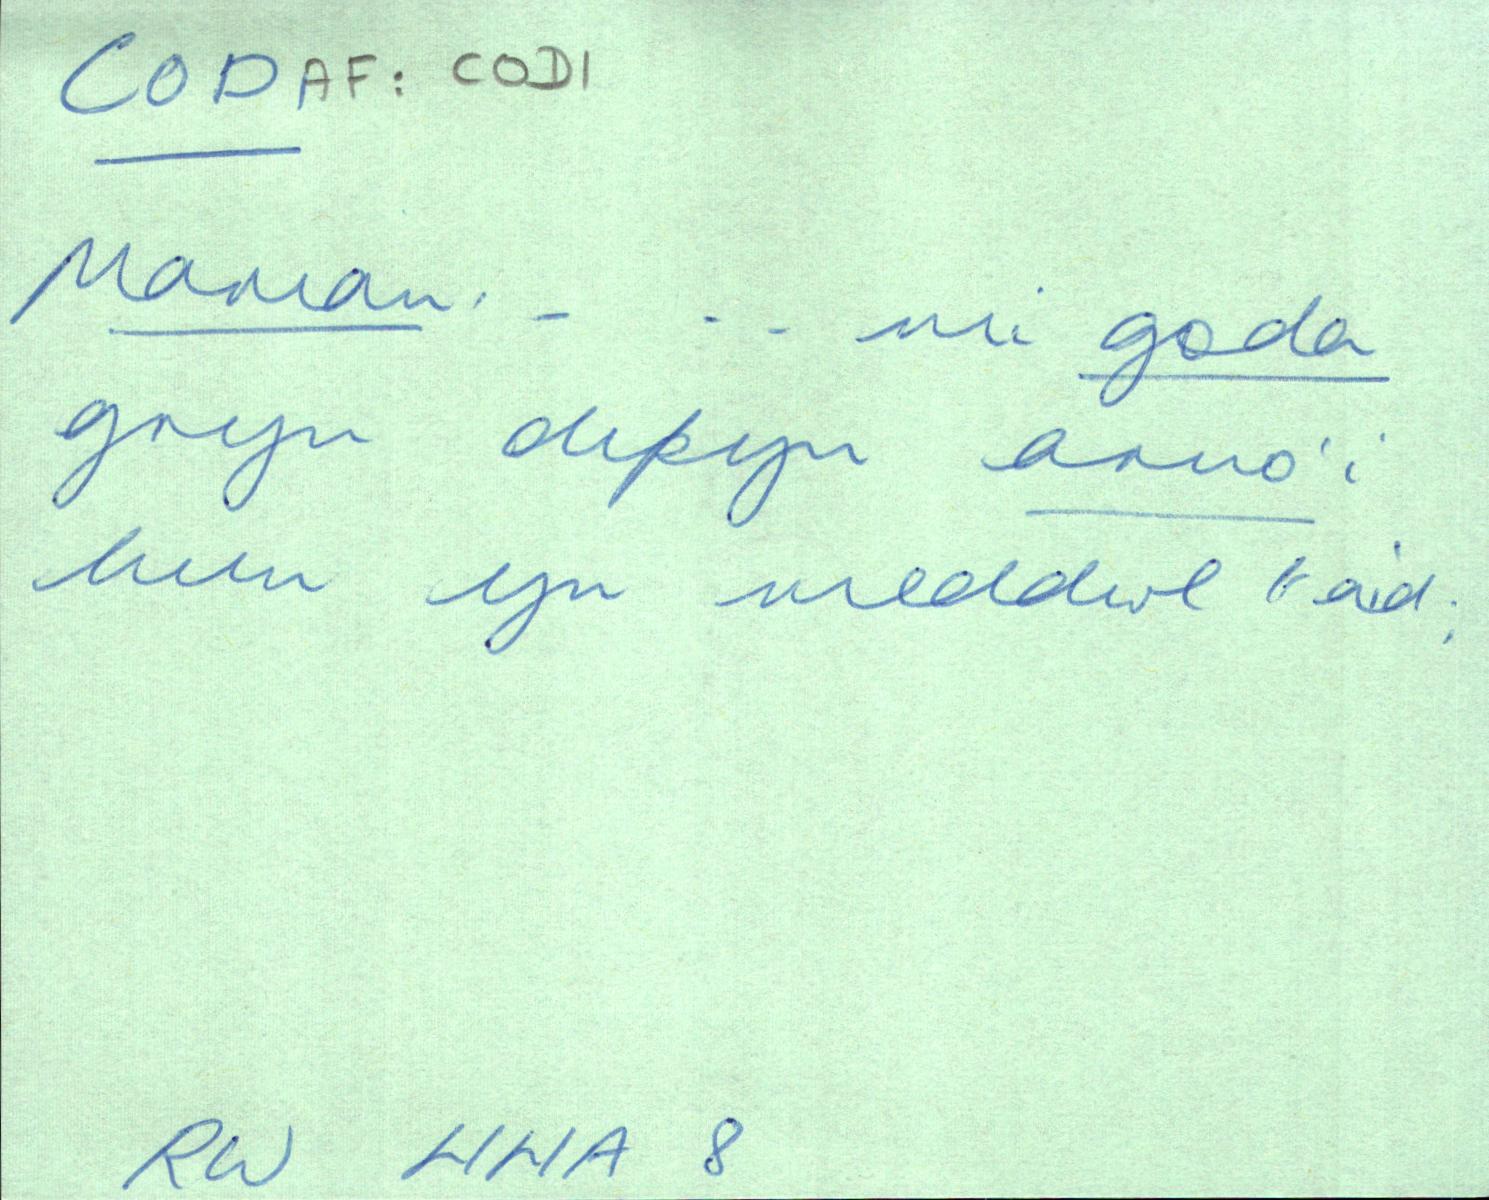 CODAF: CODI
Marian. - . . - mi goda
gryn dipyn arno'i
hun yn meddwl t'aid;
RW HHA 8